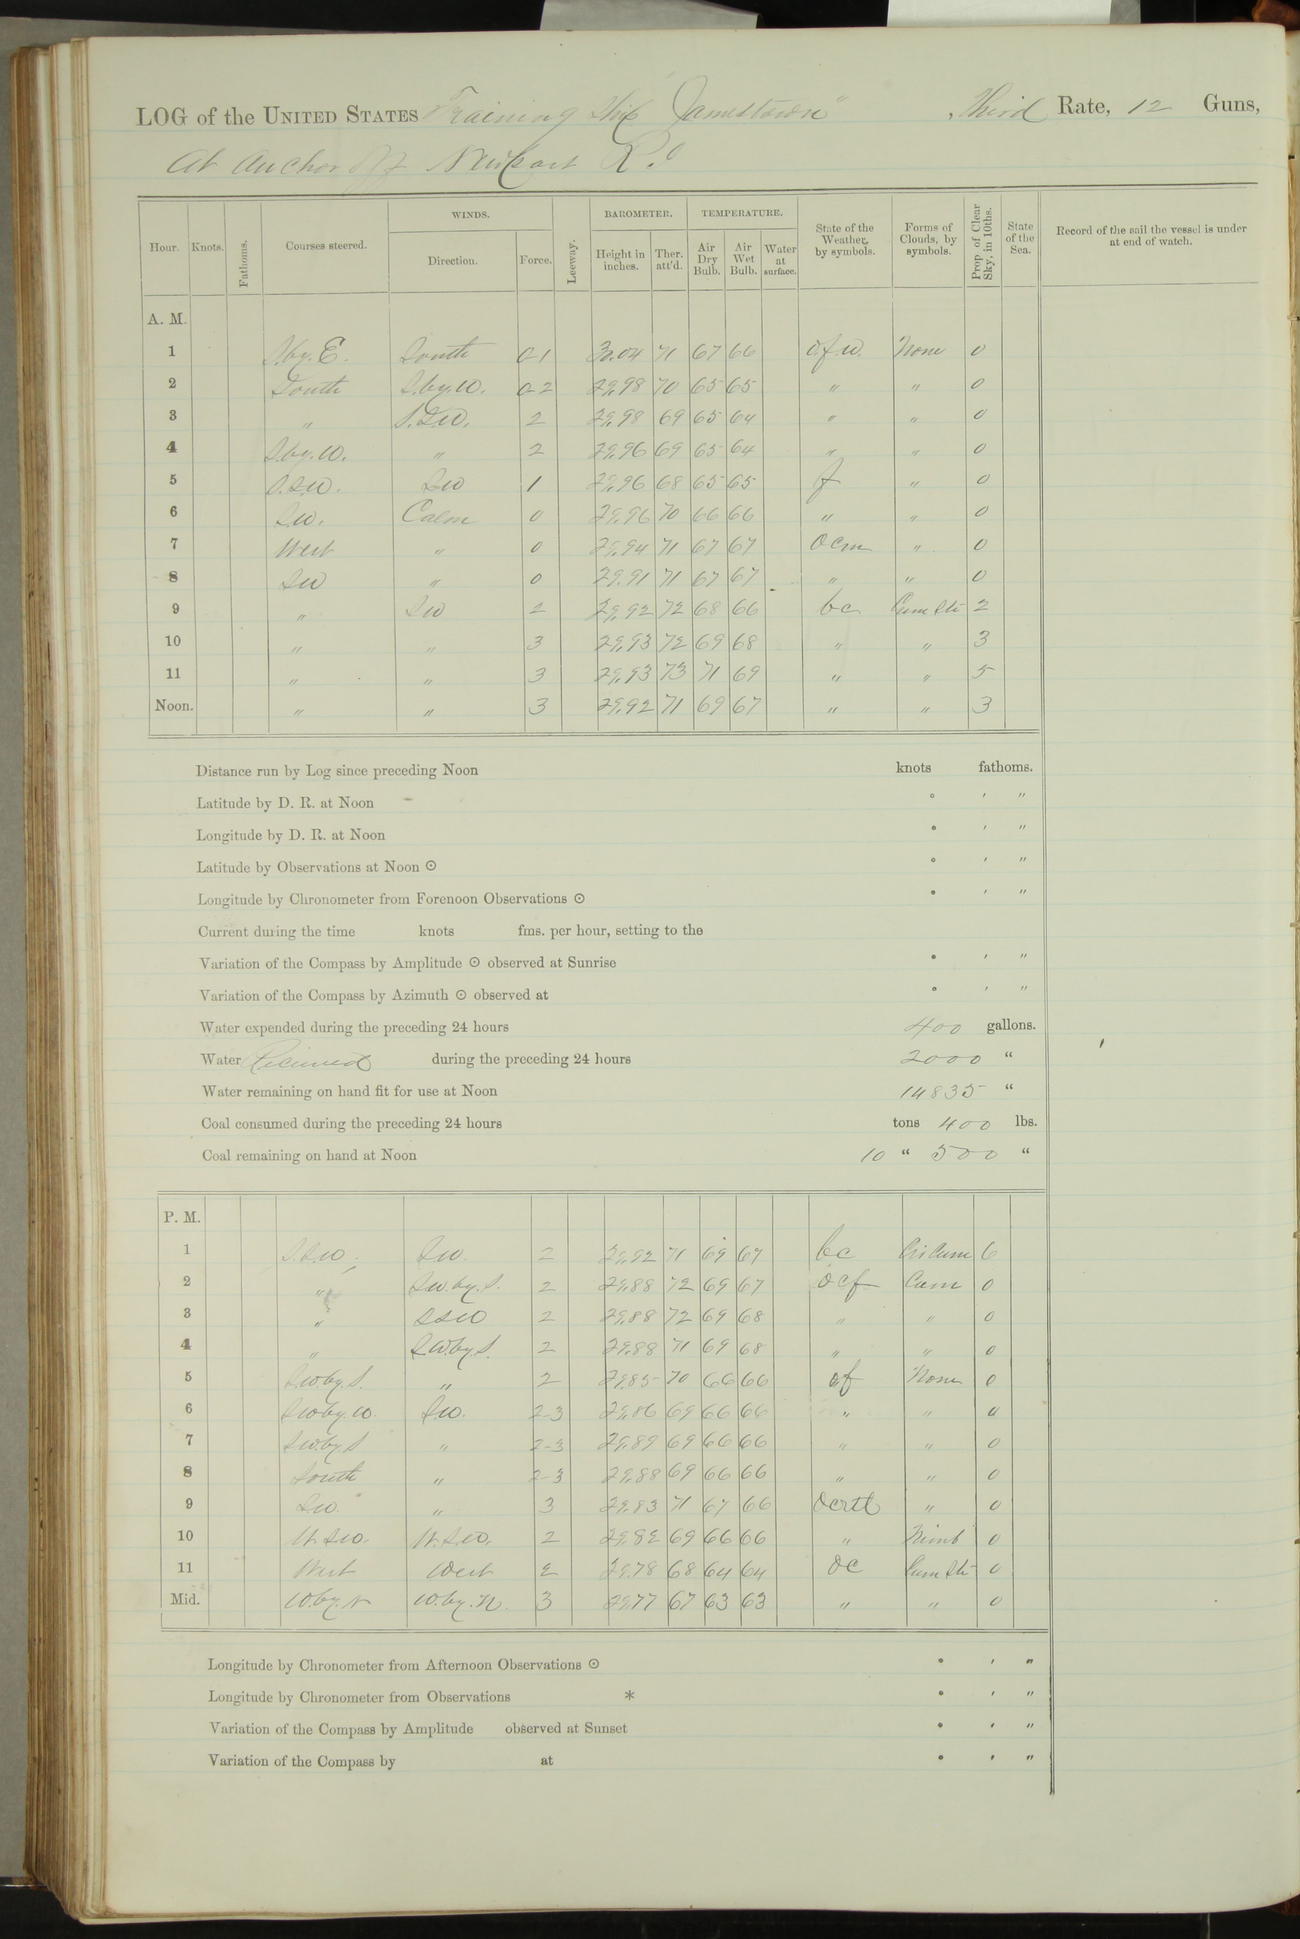 LOG of the UNITED STATES Training Ship "Jamestown", Third Rate, 12 Guns,
At Anchor off Newport R.I
Hour. Knots. Fathoms. Courses steered. WINDS. Direction. Force. Leeway. BAROMETER. Height in inches. Ther. att'd. TEMPERATURE. Air Dry Bulb. Air Wet Bulb. Water at surface. State of the Weather, by symbols. Forms of Clouds, by symbols. Prop of Clear Sky, in 10ths. State of the Sea. Record of the sail the vessel is under at end of watch.
A. M.
1 S.by.E. South 0-1 30.04 71 67 66 o.f.w. None 0
2 South S.by.W. 0-2 29.98 70 65 65 " " 0
3 " S.SW. 2 29.98 69 65 64 " " 0
4 S.by.W. " 2 29.96 69 65 64 " " 0
5 S.SW. SW 1 29.96 68 65 65 f " 0
6 SW. Calm 0 29.96 70 66 66 " " 0
7 West " 0 29.94 71 67 67 ocm " 0
8 SW " 0 29.91 71 67 67 " " 0
9 " SW 2 29.92 72 68 66 bc Cum Str 2
10 " " 3 29.93 72 69 68 " " 3
11 " " 3 29.93 73 71 69 " " 5
Noon. " " 3 29.92 71 69 67 " " 3
Distance run by Log since preceding Noon knots fathoms.
Latitude by D. R. at Noon ° ' "
Longitude by D. R. at Noon ° ' "
Latitude by Observations at Noon ☉ ° ' "
Longitude by Chronometer from Forenoon Observations ☉ ° ' "
Current during the time knots fms. per hour, setting to the
Variation of the Compass by Amplitude ☉ observed at Sunrise ° ' "
Variation of the Compass by Azimuth ☉ observed at ° ' "
Water expended during the preceding 24 hours 400 gallons.
Water Received during the preceding 24 hours 2000 "
Water remaining on hand fit for use at Noon 14835 "
Coal consumed during the preceding 24 hours tons 400 lbs.
Coal remaining on hand at Noon 10 " 500 "
P. M.
1 S.SW. SW. 2 29.92 71 69 67 bc Cir Cum 6
2 " SW.by.S. 2 29.88 72 69 67 ocf Cum 0
3 " SSW 2 29.88 72 69 68 " " 0
4 " SW.by.S. 2 29.88 71 69 68 " " 0
5 SW.by.S. " 2 29.85 70 66 66 of None 0
6 SW.by.W. SW. 2-3 29.86 69 66 66 " " 0
7 SW.by.S " 2-3 29.89 69 66 66 " " 0
8 South " 2-3 29.88 69 66 66 " " 0
9 SW. " 3 29.83 71 67 66 ocrtl " 0
10 W.SW. W.SW. 2 29.82 69 66 66 " Nimb 0
11 West West 2 29.78 68 64 64 oc Cum Str 0
Mid. W.by.N W.by.N. 3 29.77 67 63 63 " " 0
Longitude by Chronometer from Afternoon Observations ☉ ° ' "
Longitude by Chronometer from Observations * ° ' "
Variation of the Compass by Amplitude observed at Sunset ° ' "
Variation of the Compass by at ° ' "